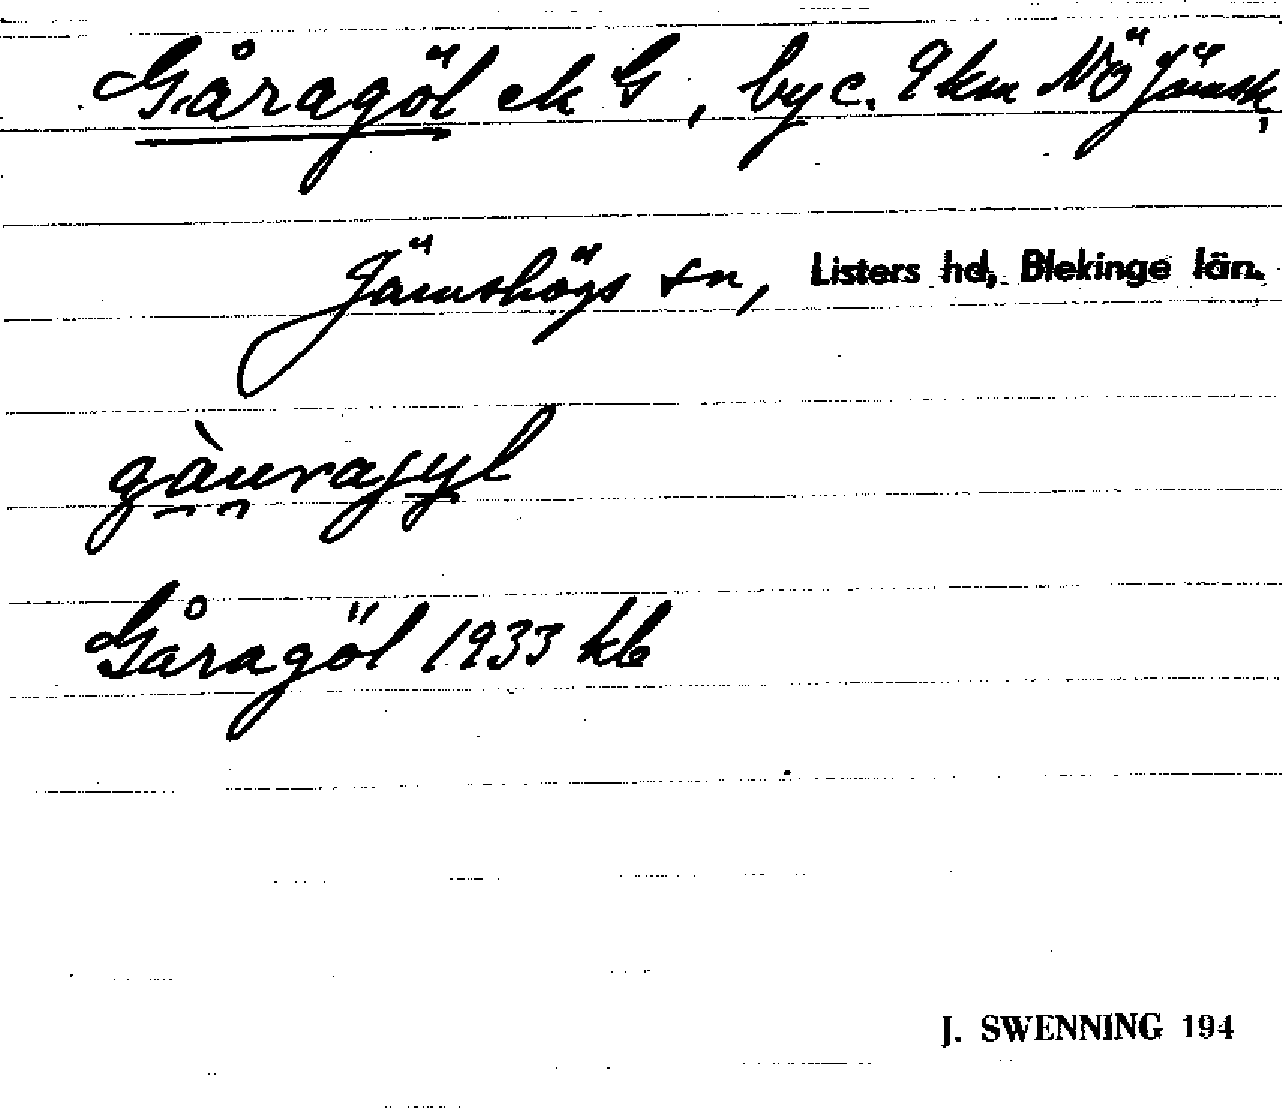 Gåragöl ek G, by c. 9 km NÖ Jämsk,
Jämshögs sn, Listers hd, Blekinge län.
gàuragyl
Gåragöl 1933 kb
J. SWENNING 194